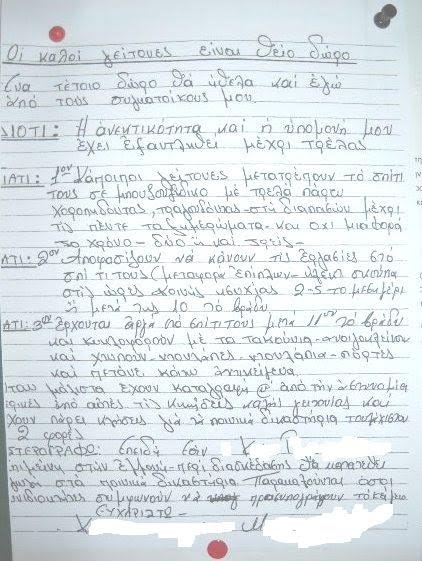 Οι καλοί γείτονες είναι θείο δώρο
Ένα τέτοιο δώρο θά ήθελα καί εγώ
από τους συγκατοίκους μου.
ΔΙΟΤΙ: Η ανεκτικότητα καί η υπομονή μου
έχει εξαντληθεί μέχρι τρέλας
ΙΑΤΙ: 1ον Κάποιοι γείτονες μετατρέπουν το σπίτι
τους σε μπουζουξίδικο μέ τρελά πάρτυ
χοροπηδώντας, τραγουδώντας στη διαπασών μέχρι
τίς πέντε τα ξημερώματα και όχι μια φορά
το χρόνο - δύο ή και τρείς -
ΑΤΙ: 2ον Αποφασίζουν νά κάνουν τίς εργασίες στο
σπίτι τους (μεταφορά επίπλων - σκούπα
στίς ώρες κοινής ησυχίας 2-5 το μεσημέρι
ή μετά τις 10 το βράδυ
ΑΤΙ: 3ον έρχονται αργά στο σπίτι τους μετά 11 το βράδυ
και κυκλοφορούν μέ τα τακούνια - ανοιγοκλείνουν
καί χτυπούν ντουλάπες - ντουλάπια - πόρτες
καί πετάνε κάτω αντικείμενα.
μάλιστα έχουν καταγραφεί από την αστυνομία
από αυτές τίς κινήσεις καλής γειτονίας καί
έχουν πάρει κλήσεις γιά τα ποινικά δικαστήρια τουλάχιστον
2 φορές
ΥΣΤΕΡΟΓΡΑΦΟ: Επειδή εάν Κ
διασκέδασης θα κατατεθεί
στά ποινικά δικαστήρια Παρακαλούνται όσοι
συμφωνούν νά προσυπογράψουν το κείμενο
ΕΥΧΑΡΙΣΤΩ -
Κ Μ